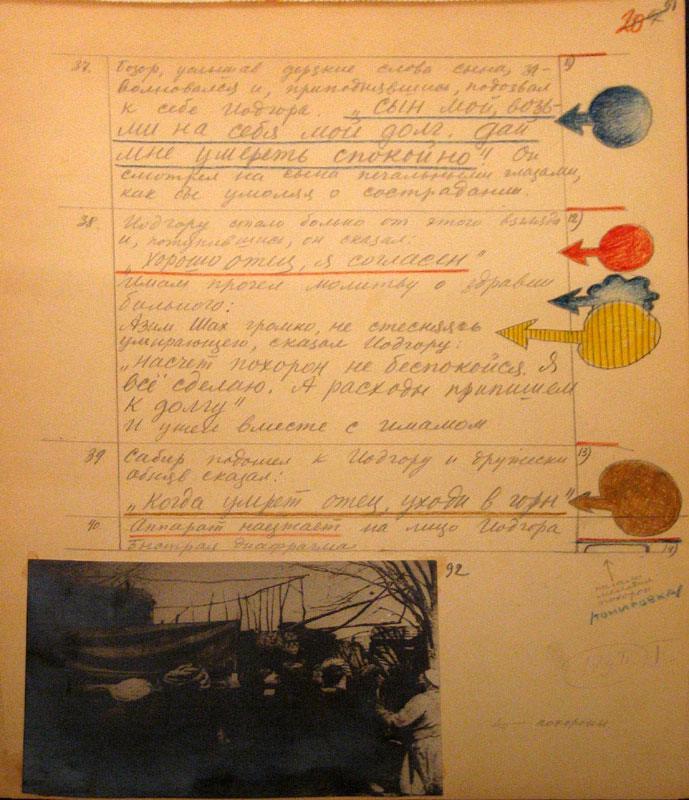 20
37. Бозор, услышав дерзкие слова сына, за-
волновался и, приподнявшись, подозвал
к себе Иодгора. „Сын мой, возь-
ми на себя мой долг. Дай
мне умереть спокойно" Он
смотрел на сына печальными глазами,
как бы умоляя о сострадании.
38. Иодгору стало больно от этого взгляда 12)
и, потупившись, он сказал:
„Хорошо отец, я согласен"
Имам прочел молитву о здравии
больного:
Азам Шах громко, не стесняясь
умирающего, сказал Иодгору:
„Насчет похорон не беспокойся. Я
всё сделаю. А расходы припишем
к долгу"
И ушел вместе с имамом
39. Сабир подошел к Иодгору и дружески 13)
обняв сказал:
„Когда умрет отец, уходи в горы"
40. Аппарат наезжает на лицо Иодгора
Быстрая диафрагма 14)
92
похорон
похороны